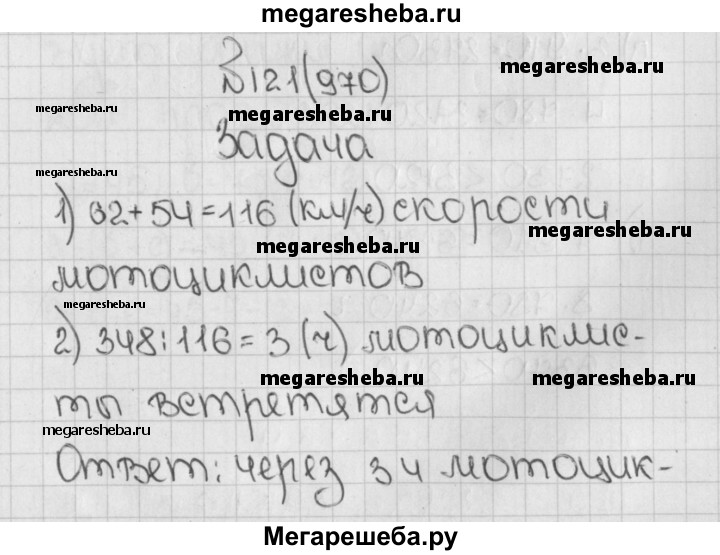 megaresheba.ru
№121(970)
megaresheba.ru
megaresheba.ru
megaresheba.ru
Задача
megaresheba.ru
1) 62+54=116 (км/ч) скорости
megaresheba.ru
megaresheba.ru
мотоциклистов
megaresheba.ru
2) 348:116=3 (ч) мотоциклис-
megaresheba.ru
megaresheba.ru
ты встретятся
megaresheba.ru
Ответ: через 3 ч мотоцик-
Мегарешеба.ру